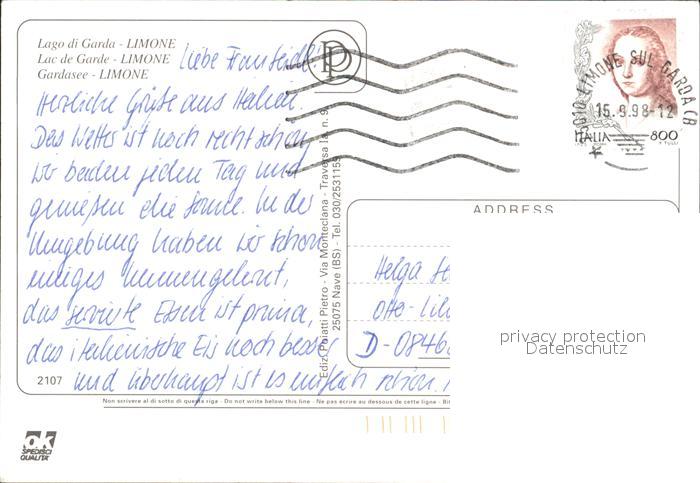 Lago di Garda - LIMONE
Lac de Garde - LIMONE
Gardasee - LIMONE
Liebe Frau Seidl!
Herzliche Grüße aus Italien.
Das Wetter ist noch recht schön
wir baden jeden Tag und
genießen die Sonne. In der
Umgebung haben wir schon
einiges kennengelernt,
das servierte Essen ist prima,
das italienische Eis noch besser
und überhaupt ist es einfach schön.
2107
P
Ediz. Poiatti Pietro - Via Monteclana - Traversa Ia, n. 9
25075 Nave (BS) - Tel. 030/2531159
LIMONE SUL GARDA (B
15.9.98-12
ITALIA 800
ADDRESS
Helga
Otto-Lil
D-0846
privacy protection
Datenschutz
Non scrivere al di sotto di questa riga - Do not write below this line - Ne pas ecrire au dessous de cette ligne - Bit
ok
SPEDISCI
QUALITA'